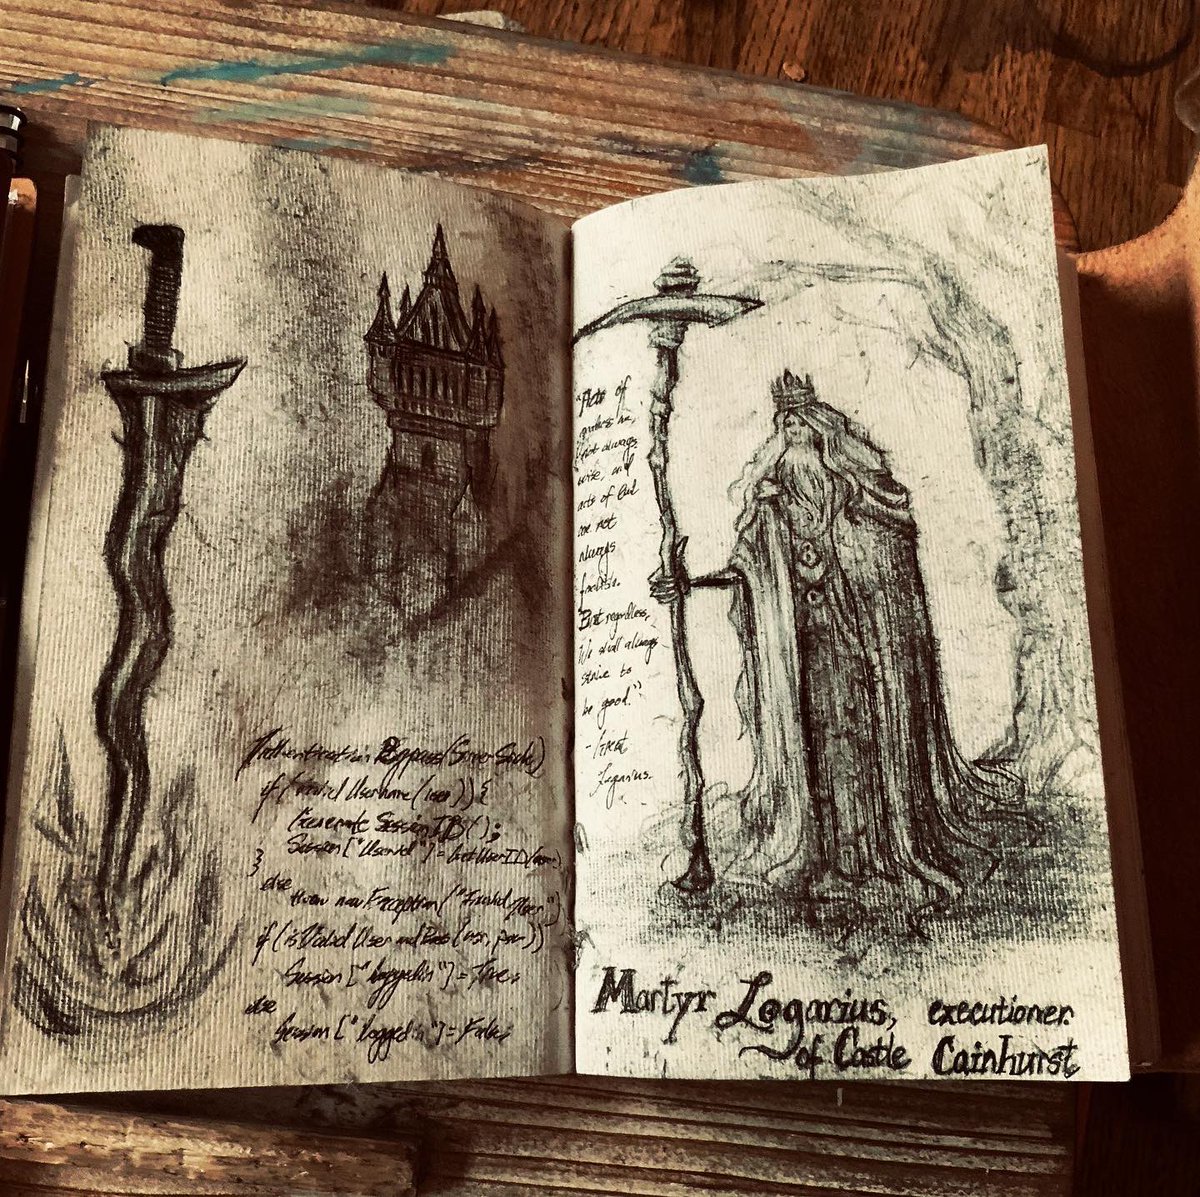 Authentication Bypass (Server Side)
if (valid Username (user)) {
Generate Session ID ();
Session ["UserId"] = GetUserID (user);
}
else
throw new Exception ("Invalid User")
if (isValid User and Pass (usr, pwr))
Session ["loggedin"] = True;
else
Session ["loggedin"] = False;
"Acts of
goodness are
not always
wise, and
acts of Evil
are not
always
foolish.
But regardless,
We shall always
strive to
be good."
- Great
Logarius.
Martyr Logarius, executioner.
of Castle Cainhurst